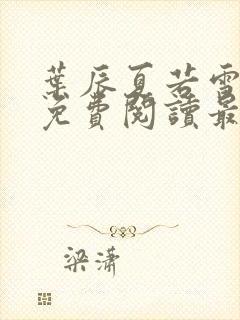 葉辰夏若雪
免費閱讀最
梁潇